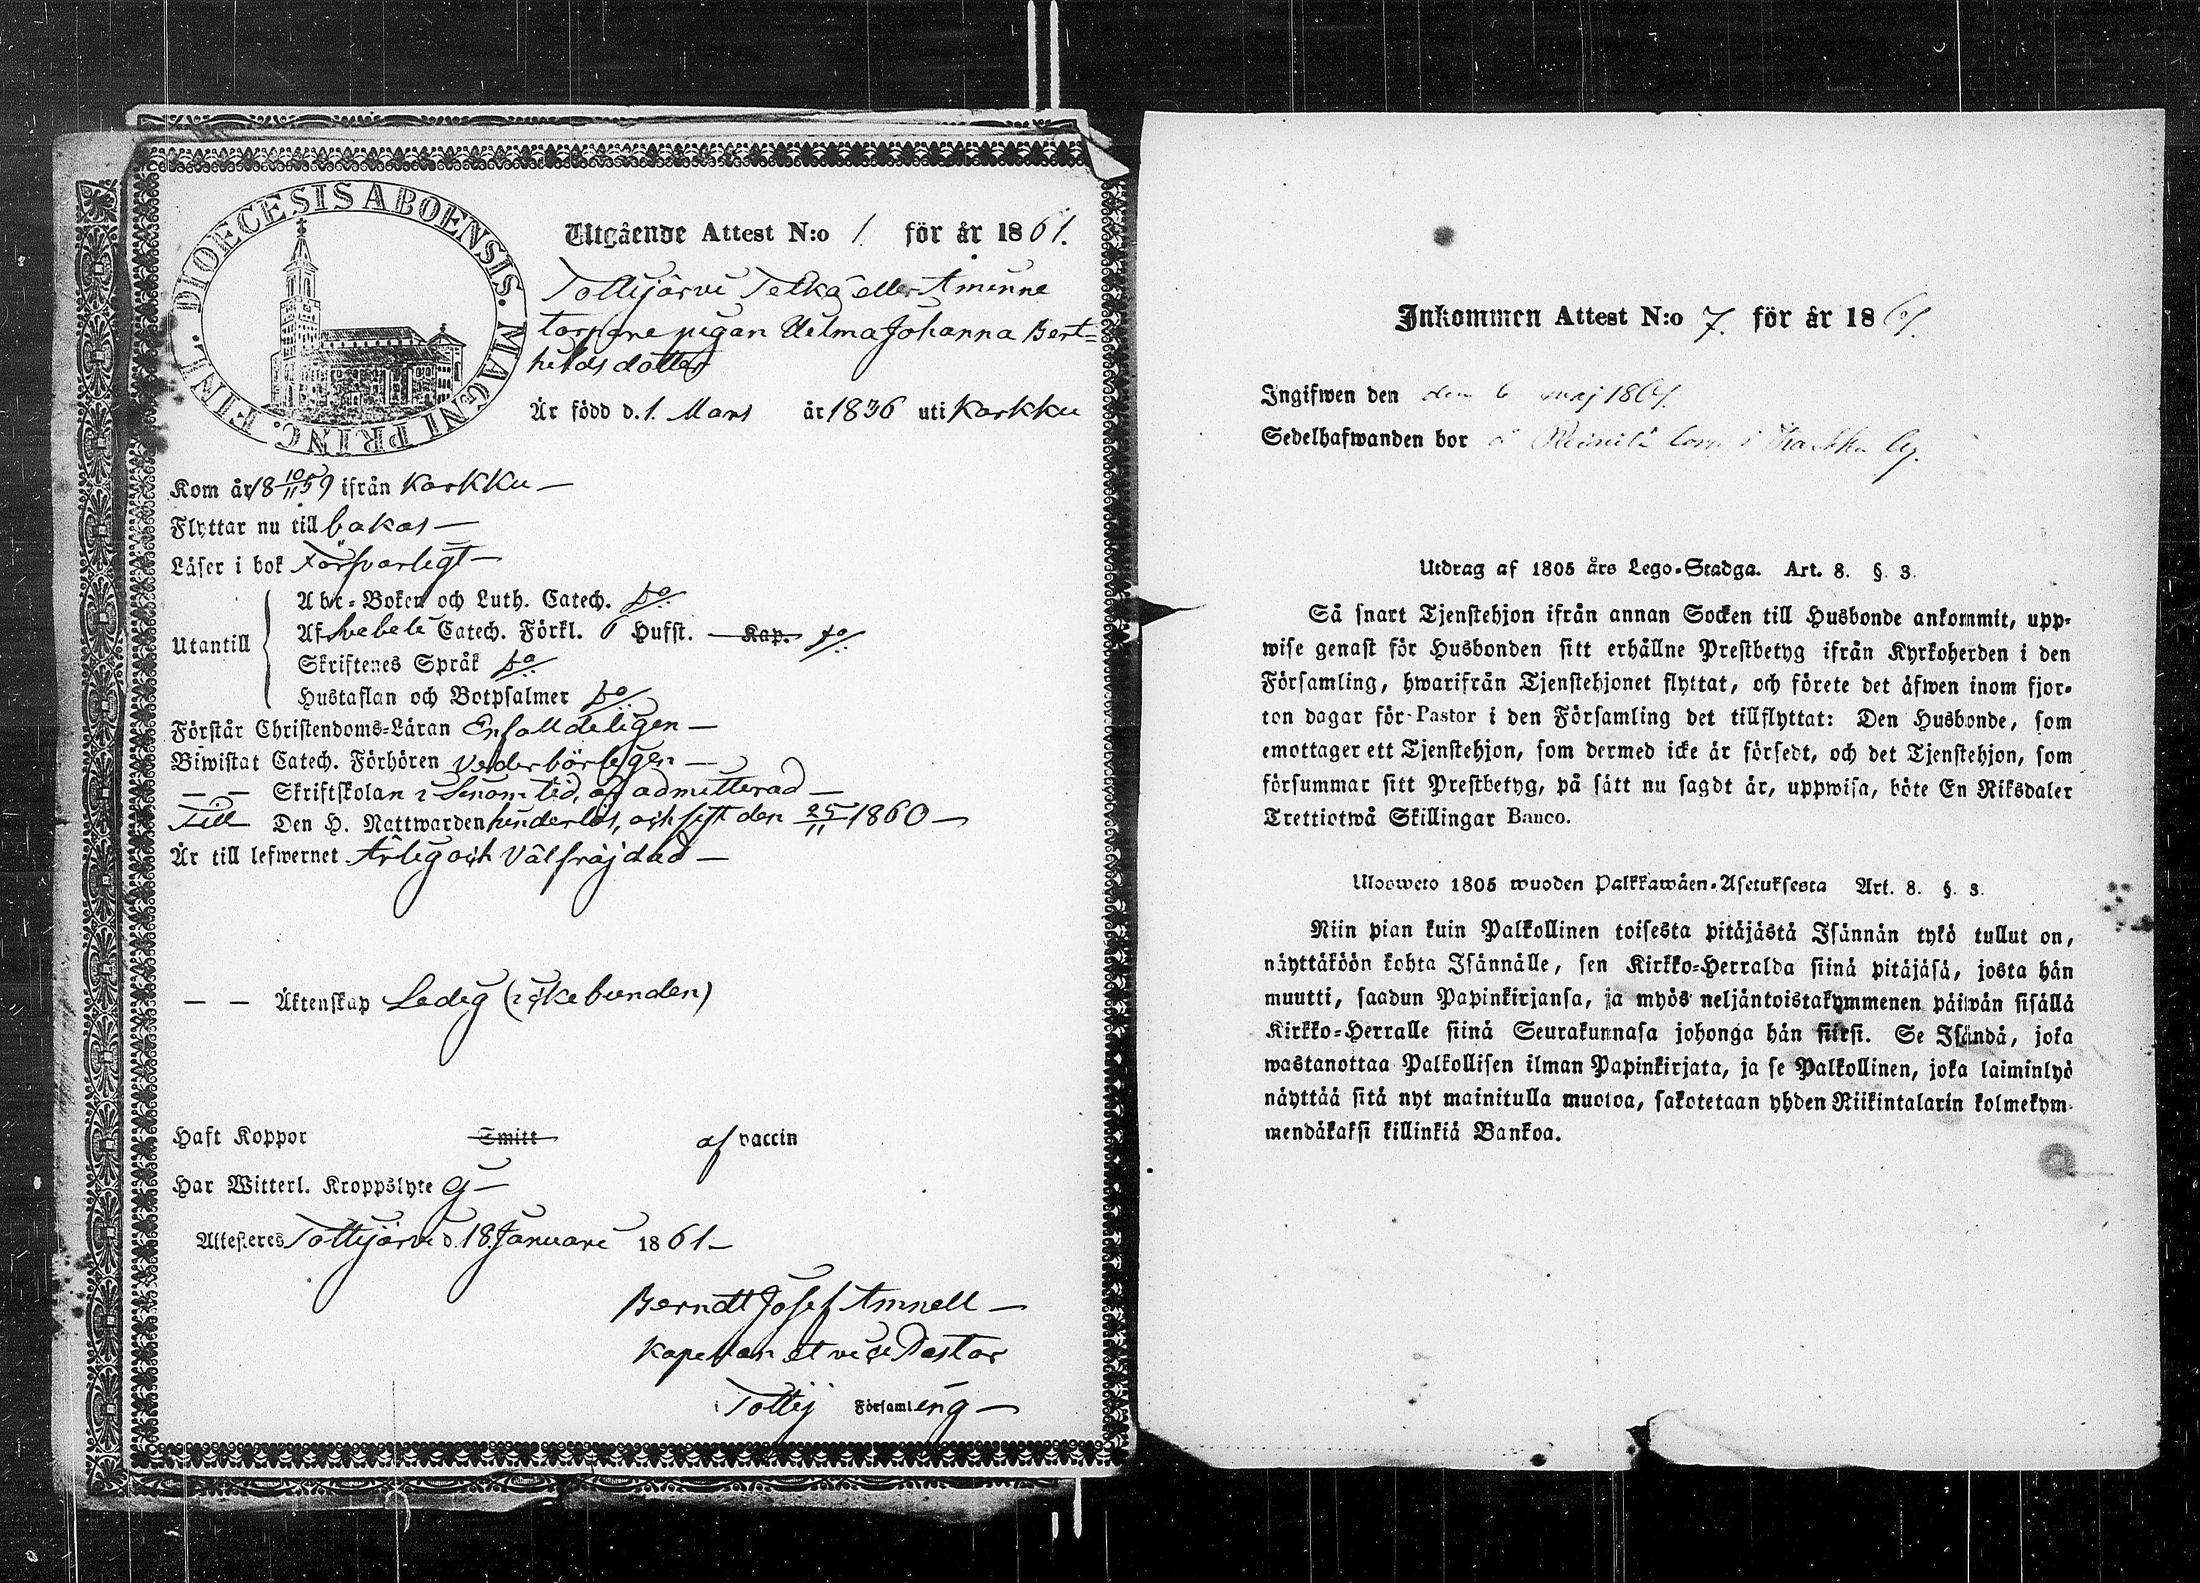 DIOECESIS ABOENSIS. MAGNI PRINC. FINL.
Utgående Attest N:o 1. för år 1861.
Tottijärvi Telkä eller Aminne
torpare pigan Uelma Johanna Bert=
hildsdotter
Är född d. 1. Mars år 1836 uti Karkku
Kom år 18 10/11 59 ifrån Karkku —
Flyttar nu till bakas —
Läser i bok Försvarligt —
Utantill
Abc-Boken och Luth. Catech. do
Af Svebelii Catech. Förkl. 6 Hufst. Kap. do
Skriftenes Språk do
Hustaflan och Botpsalmer do
Förstår Christendoms-Läran Enfalldeligen —
Biwistat Catech. Förhören vederbörligen —
— — Skriftskolan i sinom tid, och admitterad —
Till Den H. Nattwarden hinderlös, och sist den 25/11 1860 —
Är till lefwernet Ärlig och Välfräjdad —
— — Äktenskap Ledig (icke bunden)
Haft Koppor Smitt af vaccin
Har Witterl. Kroppslyte ej —
Attesteres Tottijärvi d. 18. Januari 1861 —
Berndt Josef Amnell —
Kapellan et vice Pastor
i Tottij Församling —
Inkommen Attest N:o 7. för år 1861.
Ingifwen den den 6 maj 1861.
Sedelhafwanden bor å torp i Karkku by.
Utdrag af 1805 års Lego-Stadga. Art. 8. §. 3.
Så snart Tjenstehjon ifrån annan Socken till Husbonde ankommit, upp-
wise genast för Husbonden sitt erhållne Prestbetyg ifrån Kyrkoherden i den
Församling, hwarifrån Tjenstehjonet flyttat, och förete det äfwen inom fjor-
ton dagar för Pastor i den Församling det tillflyttat: Den Husbonde, som
emottager ett Tjenstehjon, som dermed icke är försedt, och det Tjenstehjon, som
försummar sitt Prestbetyg, på sätt nu sagdt är, uppwisa, böte En Riksdaler
Trettiotwå Skillingar Banco.
Ulosweto 1805 wuoden Palkkawäen-Asetuksesta Art. 8. §. 3.
Niin pian kuin Palkollinen toisesta pitäjästä Isännän tykö tullut on,
näyttäköön kohta Isännälle, sen Kirkko-Herralda siinä pitäjäsä, josta hän
muutti, saadun Papinkirjansa, ja myös neljäntoistakymmenen päiwän sisällä
Kirkko-Herralle siinä Seurakunnasa johonga hän siirsi. Se Isändä, joka
wastanottaa Palkollisen ilman Papinkirjata, ja se Palkollinen, joka laiminlyö
näyttää sitä nyt mainitulla muotoa, sakotetaan yhden Riikintalarin kolmekym-
mendäkaksi killinkiä Bankoa.